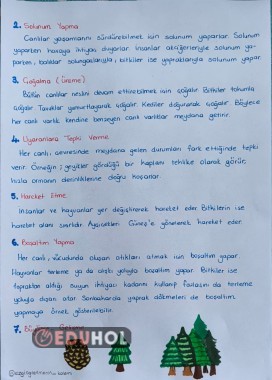 2. Solunum Yapma
Canlılar yaşamlarını sürdürebilmek için solunum yaparlar. Solunum
yaparken havaya ihtiyaç duyarlar. İnsanlar akciğerleriyle solunum ya-
parken, balıklar solungaçlarıyla, bitkiler ise yapraklarıyla solunum yapar.
3. Çoğalma (Üreme)
Bütün canlılar neslini devam ettirebilmek için çoğalır. Bitkiler tohumla
çoğalır. Tavuklar yumurtlayarak çoğalır. Kediler doğurarak çoğalır. Böylece
her canlı varlık kendine benzeyen canlı varlıklar meydana getirir.
4. Uyaranlara Tepki Verme
Her canlı, çevresinde meydana gelen durumları fark ettiğinde tepki
verir. Örneğin; geyikler gördüğü bir kaplanı tehlike olarak görür,
hızla ormanın derinliklerine doğru koşarlar.
5. Hareket Etme
İnsanlar ve hayvanlar yer değiştirerek hareket eder. Bitkilerin ise
hareket alanı sınırlıdır. Ayçiçekleri Güneş'e yönelerek hareket eder.
6. Boşaltım Yapma
Her canlı, vücudunda oluşan atıkları atmak için boşaltım yapar.
Hayvanlar terleme ya da dışkı yoluyla boşaltım yapar. Bitkiler ise
topraktan aldığı suyun ihtiyacı kadarını kullanıp fazlasını da terleme
yoluyla dışarı atar. Sonbaharda yaprak dökmeleri de boşaltım
yapmaya örnek gösterilebilir.
7.
EDUHOL